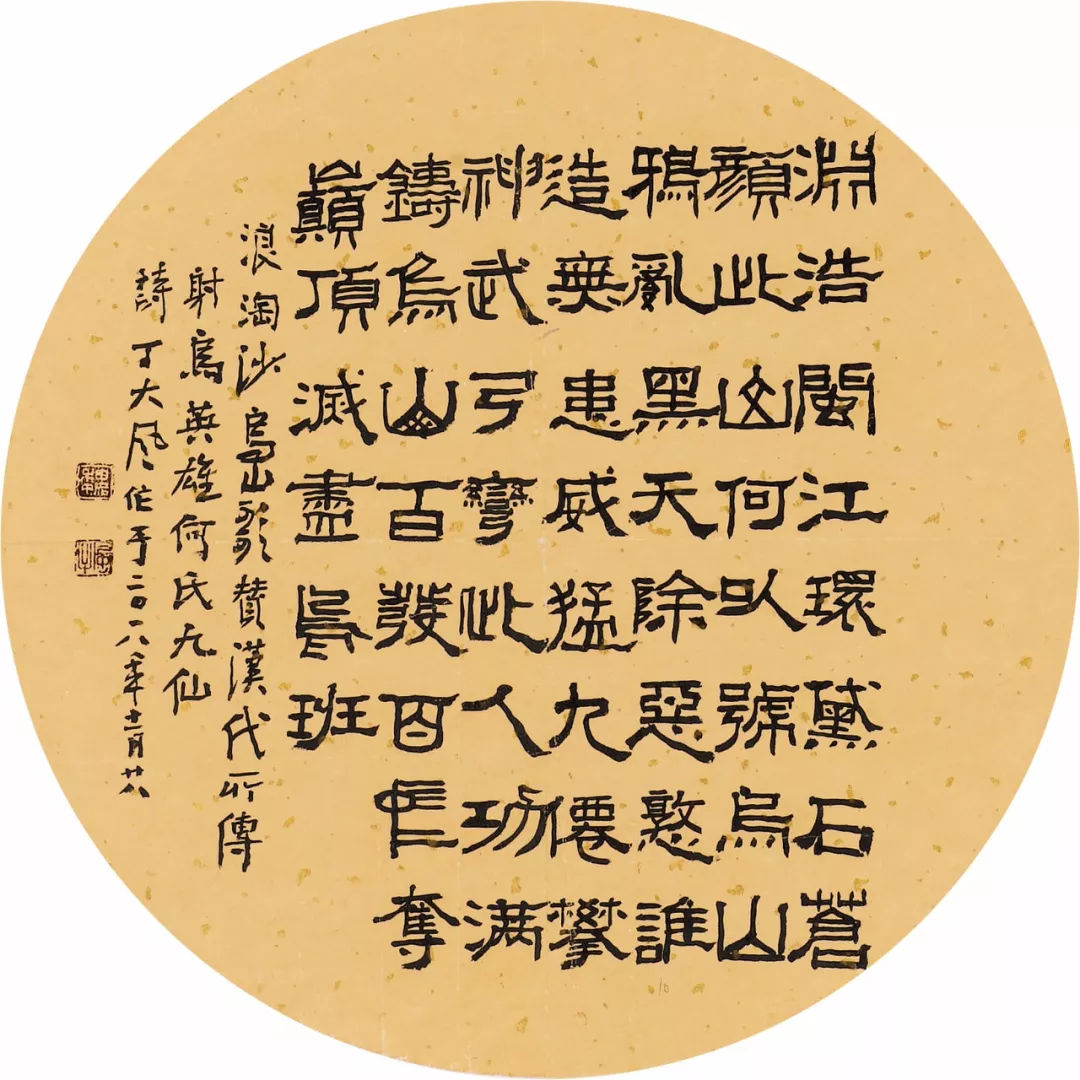 淵浩閩江環黛石蒼
顏此山何以號烏山
鴉亂黑天除惡憝誰
造無患威猛九僊攀
神武弓彎此人功滿
鑄烏山百發百中奪
巔頂滅盡烏班
浪淘沙烏山歌贊漢代所傳
射烏英雄何氏九仙
詩丁大風作于二〇一八年十一月廿八